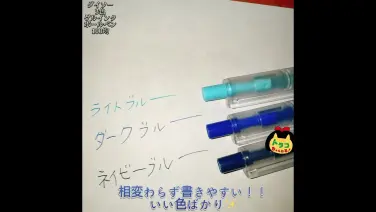 ダイソー
3色
ゲルインク
ボールペン
ライトブルー
ダークブルー
ネイビーブルー
相変わらず書きやすい！！
いい色ばかり✨